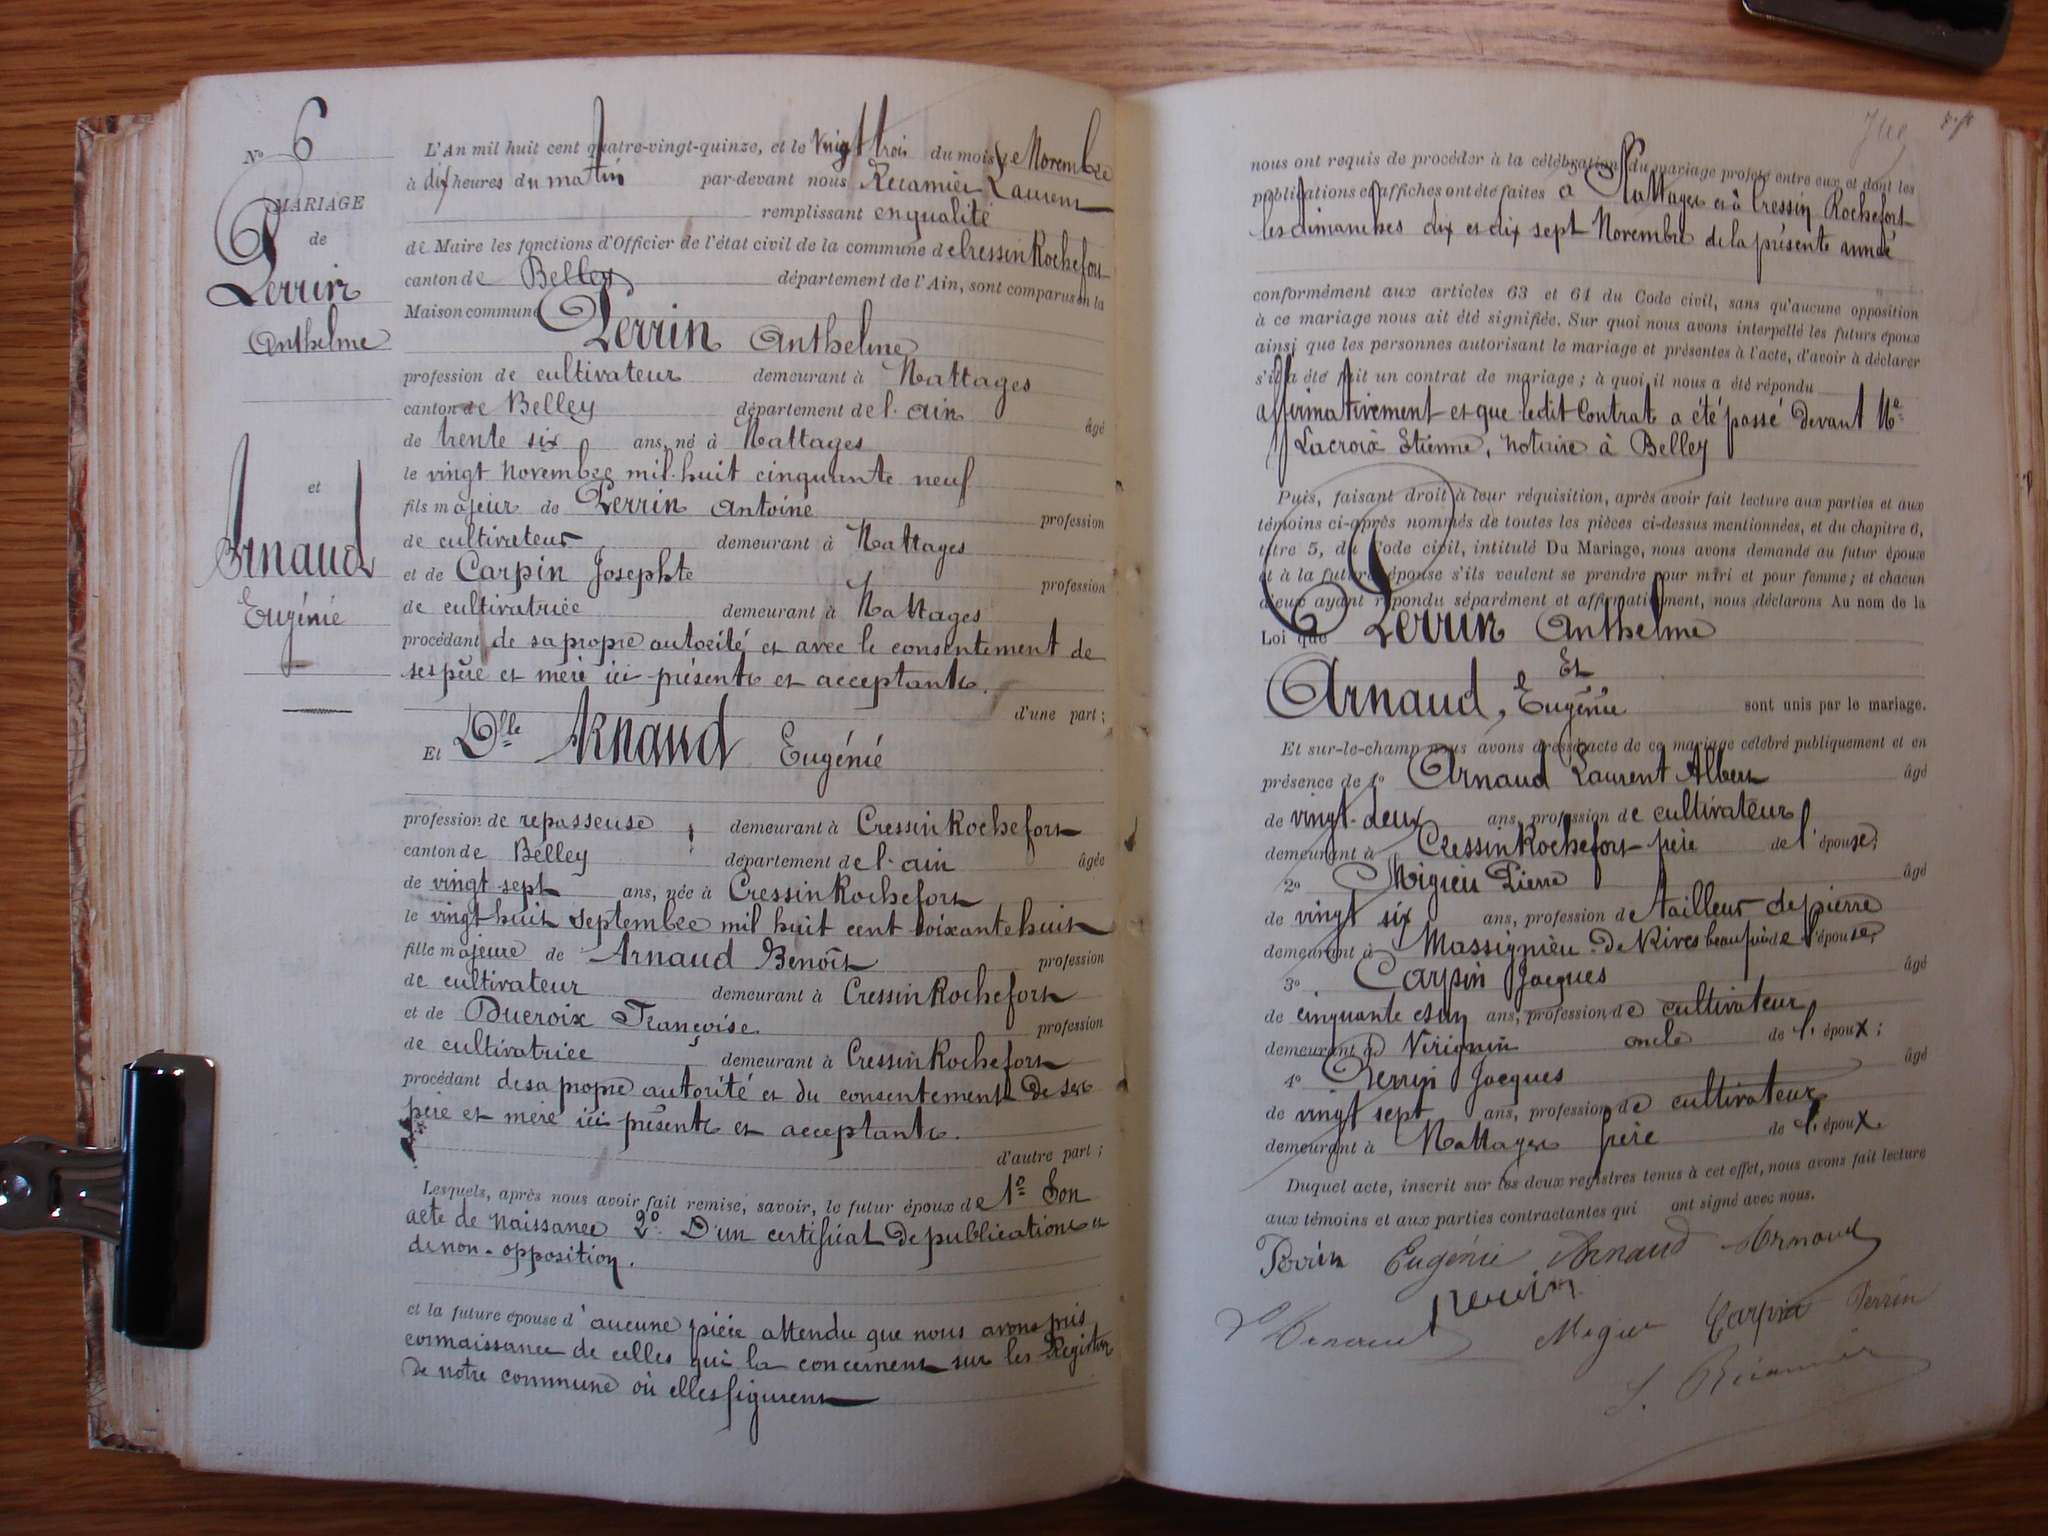 N° 6
MARIAGE
de
Perrin
Anthelme
et
Arnaud
Eugénie
L'An mil huit cent quatre-vingt-quinze, et le vingt trois du mois de Novembre
à dix heures du matin par-devant nous Recamier Laurent
remplissant en qualité
de Maire les fonctions d'Officier de l'état civil de la commune de Cressin Rochefort
canton de Belley département de l'Ain, sont comparus en la
Maison commune Perrin Anthelme
profession de cultivateur demeurant à Nattages
canton de Belley département de l'ain âgé
de trente six ans, né à Nattages
le vingt Novembre mil huit cinquante neuf
fils majeur de Perrin Antoine profession
de cultivateur demeurant à Nattages
et de Carpin Josephte profession
de cultivatrice demeurant à Nattages
procédant de sa propre autorité et avec le consentement de
ses père et mère ici présents et acceptants.
d'une part ;
Et Dlle Arnaud Eugénie
profession de repasseuse demeurant à Cressin Rochefort
canton de Belley département de l'ain âgée
de vingt sept ans, née à Cressin Rochefort
le vingt huit septembre mil huit cent soixante huit
fille majeure de Arnaud Benoît profession
de cultivateur demeurant à Cressin Rochefort
et de Ducroix Françoise profession
de cultivatrice demeurant à Cressin Rochefort
procédant de sa propre autorité et du consentement de ses
père et mère ici présents et acceptants.
d'autre part ;
Lesquels, après nous avoir fait remise, savoir, le futur époux de 1° Son
acte de naissance 2° D'un certificat de publications et
de non-opposition.
et la future épouse d'aucune pièce attendu que nous avons pris
connaissance de celles qui la concernent sur les Registres
de notre commune où elles figurent
nous ont requis de procéder à la célébration du mariage projeté entre eux et dont les
publications et affiches ont été faites à Nattages et à Cressin Rochefort
les dimanches dix et dix sept Novembre de la présente année
conformément aux articles 63 et 64 du Code civil, sans qu'aucune opposition
à ce mariage nous ait été signifiée. Sur quoi nous avons interpellé les futurs époux
ainsi que les personnes autorisant le mariage et présentes à l'acte, d'avoir à déclarer
s'il a été fait un contrat de mariage ; à quoi il nous a été répondu
affirmativement et que ledit Contrat a été passé devant Me
Lacroix Etienne, notaire à Belley
Puis, faisant droit à leur réquisition, après avoir fait lecture aux parties et aux
témoins ci-après nommés de toutes les pièces ci-dessus mentionnées, et du chapitre 6,
titre 5, du Code civil, intitulé Du Mariage, nous avons demandé au futur époux
et à la future épouse s'ils veulent se prendre pour mari et pour femme ; et chacun
d'eux ayant répondu séparément et affirmativement, nous déclarons Au nom de la
Loi que Perrin Anthelme
Et
Arnaud, Eugénie sont unis par le mariage.
Et sur-le-champ nous avons dressé acte de ce mariage célébré publiquement et en
présence de 1° Arnaud Laurent Albert âgé
de vingt-deux ans, profession de cultivateur
demeurant à Cressin Rochefort frère de l'épouse ;
2° Migieu Pierre âgé
de vingt six ans, profession de tailleur de pierre
demeurant à Massignieu de Rives beau frère de l'épouse ;
3° Carpin Jacques âgé
de cinquante et un ans, profession de cultivateur
demeurant à Virignin oncle de l'époux ;
4° Perrin Jacques âgé
de vingt sept ans, profession de cultivateur
demeurant à Nattages frère de l'époux.
Duquel acte, inscrit sur les deux registres tenus à cet effet, nous avons fait lecture
aux témoins et aux parties contractantes qui ont signé avec nous.
Perrin Eugénie Arnaud Arnaud
Perrin
Arnaud Migieu Carpin Perrin
L. Récamier